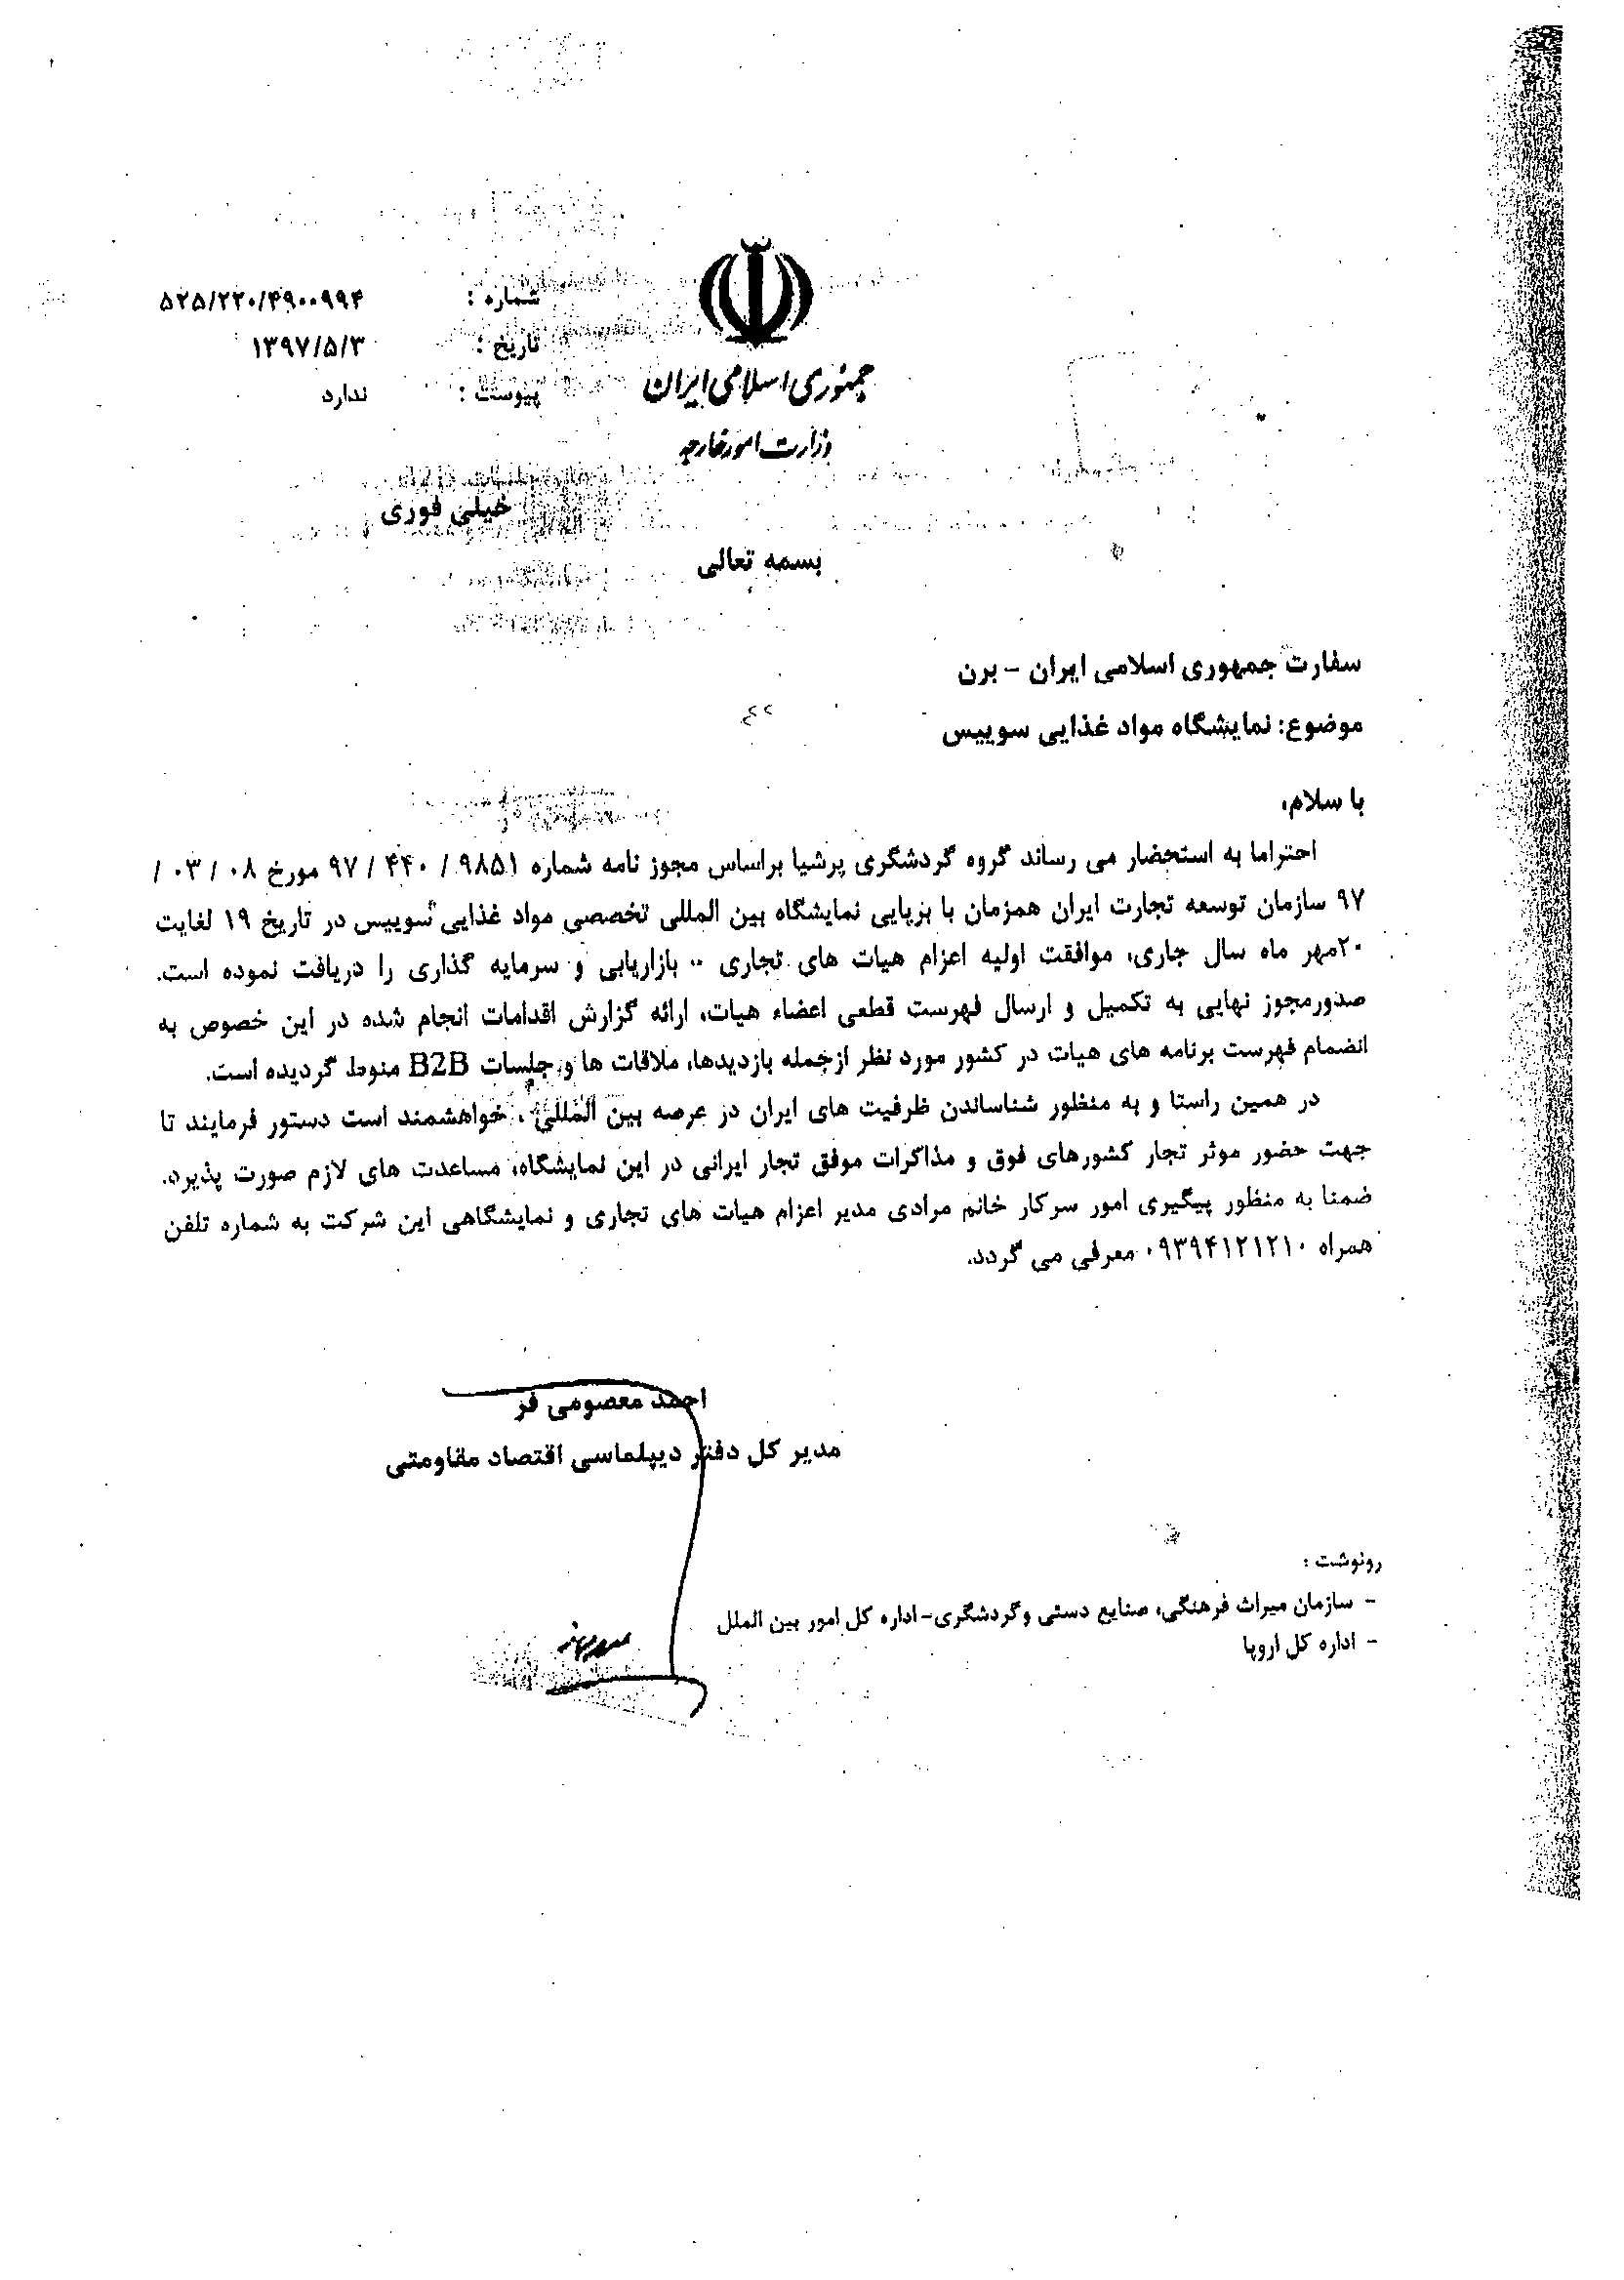 جمهوری اسلامی ایران
وزارت امور خارجه
شماره : ۵۲۵/۲۲۰/۴۹۰۰۹۹۴
تاریخ : ۱۳۹۷/۵/۳
پیوست : ندارد
خیلی فوری
بسمه تعالی
سفارت جمهوری اسلامی ایران - برن
موضوع: نمایشگاه مواد غذایی سوییس
با سلام،
احتراما به استحضار می رساند گروه گردشگری پرشیا براساس مجوز نامه شماره ۹۸۵۱ / ۴۴۰ / ۹۷ مورخ ۰۸ / ۰۳ /
۹۷ سازمان توسعه تجارت ایران همزمان با برپایی نمایشگاه بین المللی تخصصی مواد غذایی سوییس در تاریخ ۱۹ لغایت
۲۰مهر ماه سال جاری، موافقت اولیه اعزام هیات های تجاری - بازاریابی و سرمایه گذاری را دریافت نموده است.
صدورمجوز نهایی به تکمیل و ارسال فهرست قطعی اعضاء هیات، ارائه گزارش اقدامات انجام شده در این خصوص به
انضمام فهرست برنامه های هیات در کشور مورد نظر ازجمله بازدیدها، ملاقات ها و جلسات B2B منوط گردیده است.
در همین راستا و به منظور شناساندن ظرفیت های ایران در عرصه بین المللی، خواهشمند است دستور فرمایند تا
جهت حضور موثر تجار کشورهای فوق و مذاکرات موفق تجار ایرانی در این نمایشگاه، مساعدت های لازم صورت پذیرد.
ضمنا به منظور پیگیری امور سرکار خانم مرادی مدیر اعزام هیات های تجاری و نمایشگاهی این شرکت به شماره تلفن
همراه ۰۹۳۹۴۱۲۱۲۱۰ معرفی می گردد.
احمد معصومی فر
مدیر کل دفتر دیپلماسی اقتصاد مقاومتی
رونوشت :
- سازمان میراث فرهنگی، صنایع دستی وگردشگری-اداره کل امور بین الملل
- اداره کل اروپا